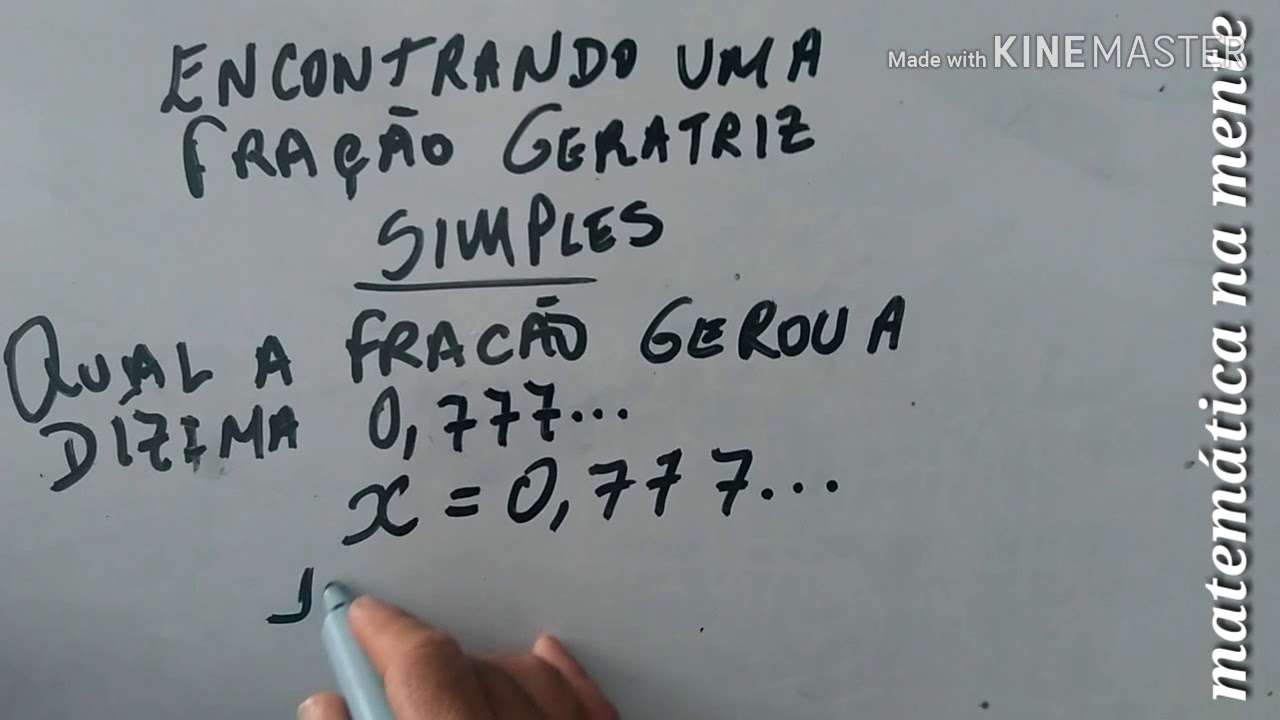 ENCONTRANDO UMA
FRAÇÃO GERATRIZ
SIMPLES
QUAL A FRACÃO GEROU A
DÍZIMA 0,777...
x = 0,777...
1
Made with KINEMASTER
matemática na mente